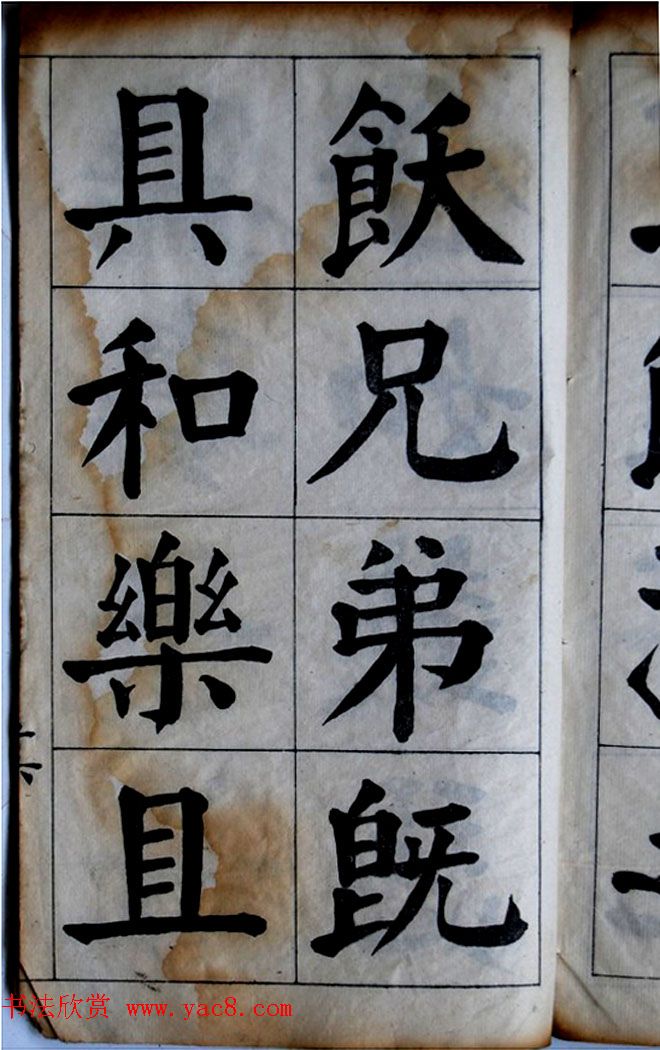 飫兄弟既
具和樂且
书法欣赏 www.yac8.com